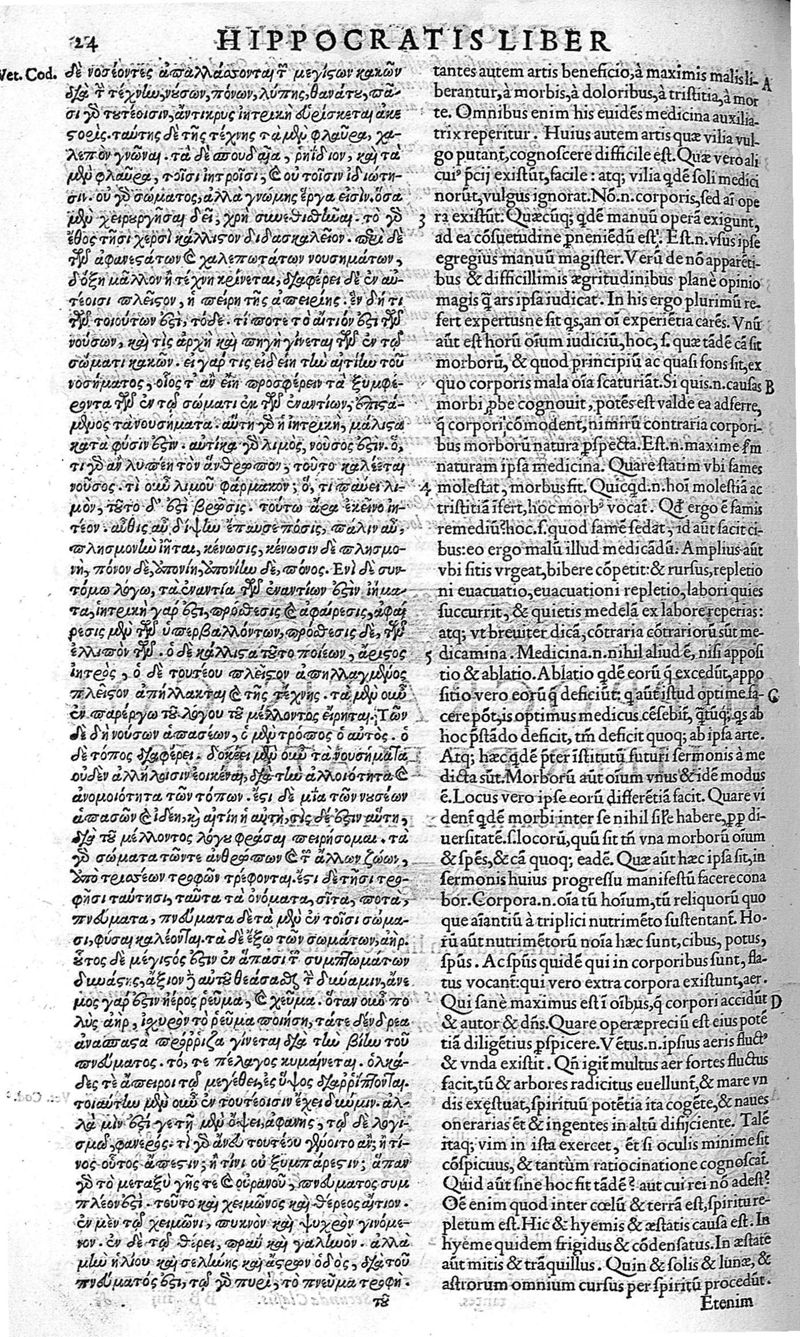 24 HIPPOCRATIS LIBER
Vet. Cod.
δὲ νοσέοντες ἀπαλλάσσονται τῶν μεγίστων κακῶν
διὰ τὴν τέχνην, νούσων, πόνων, λύπης, θανάτου, πᾶ-
σι γὰρ τουτέοισιν, ἄντικρυς ἰητρικὴ εὑρίσκεται ἀκε
στορίς. ταύτης δὲ τῆς τέχνης τὰ μὲν φλαῦρα, χα-
λεπὸν γνῶναι. τὰ δὲ σπουδαῖα, ῥηΐδιον, καὶ τὰ
μὲν φλαῦρα, τοῖσι ἰητροῖσι, καὶ οὐ τοῖσιν ἰδιώτη-
σιν. οὐ γὰρ σώματος, ἀλλὰ γνώμης ἔργα εἰσίν. ὅσα
μὲν χειρουργῆσαι δεῖ, χρὴ συνεθισθῆναι. τὸ γὰρ
ἔθος τῇσι χερσὶ κάλλιστον διδασκαλεῖον. περὶ δὲ
τῶν ἀφανεστάτων καὶ χαλεπωτάτων νουσημάτων,
δόξῃ μᾶλλον ἢ τέχνῃ κρίνεται, διαφέρει δὲ ἐν αὐ-
τέοισι πλεῖστον, ἡ πείρη τῆς ἀπειρίης. ἓν δή τι
τῶν τοιούτων ἐστί, τόδε. τί ποτε τὸ αἴτιόν ἐστι τῶν
νούσων, καὶ τίς ἀρχὴ καὶ πηγὴ γίνεται τῶν ἐν τῷ
σώματι κακῶν. εἰ γάρ τις εἰδείη τὴν αἰτίην τοῦ
νοσήματος, οἷός τ' ἂν εἴη προσφέρειν τὰ ξυμφέ-
ροντα τῶν ἐν τῷ σώματι ἐκ τῶν ἐναντίων, ἐπιστά-
μενος τὰ νουσήματα. αὕτη γὰρ ἡ ἰητρική, μάλιστα
κατὰ φύσιν ἐστίν. αὐτίκα γὰρ λιμός, νοῦσός ἐστιν. ὅ,
τι γὰρ ἂν λυπέῃ τὸν ἄνθρωπον, τοῦτο καλέεται
νοῦσος. τί οὖν λιμοῦ φάρμακον; ὅ, τι παύει λι-
μόν, τοῦτο δ' ἐστὶ βρῶσις. τούτῳ ἄρα ἐκεῖνο ἰη-
τέον. αὖθις αὖ δίψην ἔπαυσε πόσις, πάλιν αὖ,
πλησμονὴν ἰῆται, κένωσις, κένωσιν δὲ πλησμο-
νή, πόνον δὲ, ἀπονίη, ἀπονίην δὲ, πόνος. Ἑνὶ δὲ συν-
τόμῳ λόγῳ, τὰ ἐναντία τῶν ἐναντίων ἐστὶν ἰήμα-
τα, ἰητρικὴ γάρ ἐστι, πρόσθεσις καὶ ἀφαίρεσις, ἀφαί
ρεσις μὲν τῶν ὑπερβαλλόντων, πρόσθεσις δὲ, τῶν
ἐλλιπόντων. ὁ δὲ κάλλιστα τοῦτο ποιέων, ἄριστος
ἰητρὸς, ὁ δὲ τουτέου πλεῖστον ἀπηλλαγμένος
πλεῖστον ἀπήλλακται καὶ τῆς τέχνης. τὰ μὲν οὖν
ἐν παρέργῳ τοῦ λόγου τοῦ μέλλοντος εἴρηται. Τῶν
δὲ δὴ νούσων ἁπασέων, ὁ μὲν τρόπος ὁ αὐτός. ὁ
δὲ τόπος διαφέρει. δοκέει μὲν οὖν τὰ νουσήματα
οὐδὲν ἀλλήλοισιν ἐοικέναι, διὰ τὴν ἀλλοιότητα καὶ
ἀνομοιότητα τῶν τόπων. ἔστι δὲ μία τῶν νούσων
ἁπασῶν καὶ ἰδέη, καὶ αἰτίη ἡ αὐτή, τίς δέ ἐστιν αὕτη,
διὰ τοῦ μέλλοντος λόγου φράσαι πειρήσομαι. τὰ
γὰρ σώματα τῶν τε ἀνθρώπων καὶ τῶν ἄλλων ζώων,
ὑπὸ τρισσέων τροφῶν τρέφονται. ἔστι δὲ τῇσι τρο-
φῇσι ταύτῃσι, ταῦτα τὰ ὀνόματα, σῖτα, ποτὰ,
πνεύματα, πνεύματα δὲ τὰ μὲν ἐν τοῖσι σώμα-
σι, φῦσαι καλέονται. τὰ δὲ ἔξω τῶν σωμάτων, ἀήρ.
οὗτος δὲ μέγιστός ἐστιν ἐν ἅπασι τῶν συμπτωμάτων
δυνάστης, ἄξιον δὴ αὐτοῦ θεάσασθαι τὴν δύναμιν, ἄνε
μος γάρ ἐστιν ἠέρος ῥεῦμα, καὶ χεῦμα. ὅταν οὖν πο
λὺς ἀὴρ, ἰσχυρὸν τὸ ῥεῦμα ποιήσῃ, τά τε δένδρεα
ἀνάσπαστα πρόρριζα γίνεται διὰ τὴν βίην τοῦ
πνεύματος. τό, τε πέλαγος κυμαίνεται. ὁλκά-
δες τε ἄπειροι τῷ μεγέθει, ἐς ὕψος διαρριπτοῦνται.
τοιαύτην μὲν οὖν ἐν τουτέοισιν ἔχει δύναμιν. ἀλ-
λὰ μήν ἐστί γε τῇ μὲν ὄψει, ἀφανής, τῷ δὲ λογι-
σμῷ, φανερός. τί γὰρ ἄνευ τουτέου γένοιτο ἄν; ἢ τί-
νος οὗτος ἄπεστιν; ἢ τίνι οὐ ξυμπάρεστιν; ἅπαν
γὰρ τὸ μεταξὺ γῆς τε καὶ οὐρανοῦ, πνεύματος σύμ
πλεόν ἐστι. τοῦτο καὶ χειμῶνος καὶ θέρεος αἴτιον.
ἐν μὲν τῷ χειμῶνι, πυκνὸν καὶ ψυχρὸν γινόμε-
νον. ἐν δὲ τῷ θέρει, πραῢ καὶ γαληνόν. ἀλλὰ
μὴν ἡλίου καὶ σελήνης καὶ ἄστρων ὁδὸς, διὰ τοῦ
πνεύματός ἐστι, τῷ γὰρ πυρὶ, τὸ πνεῦμα τροφή.
τοῦ
tantes autem artis beneficio, à maximis malis li-
berantur, à morbis, à doloribus, à tristitia, à mor
te. Omnibus enim his euidẽs medicina auxilia-
trix reperitur. Huius autem artis quæ vilia vul
go putant, cognoscere difficile est. Quæ vero ali
cui' p̃cij existũt, facile: atq; vilia q̃dẽ soli medici
norũt, vulgus ignorat. Nõ.n. corporis, sed aĩ ope
3 ra existũt. Quæcũq; q̃dẽ manuũ operã exigunt,
ad ea cõsuetudine ꝑueniẽdũ est. Est.n. vsus ipse
egregius manuũ magister. Verũ de nõ apparẽti-
bus & difficillimis ægritudinibus planè opinio
magis q̃ ars ipsa iudicat. In his ergo plurimũ re-
fert expertusne sit qs, an oĩ experiẽtia carẽs. Vnũ
aũt est horũ oĩum iudiciũ, hoc, s. quæ tãdẽ cã sit
morborũ, & quod principiũ ac quasi fons sit, ex
quo corporis mala oĩa scaturiãt. Si quis.n. causas B
morbi ꝓbe cognouit, potẽs est valde ea adferre,
q̃ corpori cõmodent, nimirũ contraria corpori-
bus morborũ natura ꝑspecta. Est.n. maxime ẽm
naturam ipsa medicina. Quare statim vbi fames
4 molestat, morbus fit. Quicq̃d.n. hoĩ molestiã ac
tristitiã ĩfert, hoc morb' vocat. Qd̃ ergo ẽ famis
remediũ? hoc. s. quod famẽ sedat, id aũt facit ci-
bus: eo ergo malũ illud medicãdũ. Amplius aũt
vbi sitis vrgeat, bibere cõpetit: & rursus, repletio
ni euacuatio, euacuationi repletio, labori quies
succurrit, & quietis medelã ex labore reperias:
atq; vt breuiter dicã, cõtraria cõtrariorũ sũt me-
5 dicamina. Medicina.n. nihil aliud ẽ, nisi apposi
tio & ablatio. Ablatio q̃dẽ eorũ q̃ excedũt, appo
sitio vero eorũ q̃ deficiũt: q aũt istud optime fa-
cere põt, is optimus medicus cẽsebit̃, q̃tũq; qs ab
hoc p̃stãdo deficit, tm̃ deficit quoq; ab ipsa arte.
Atq; hæc q̃dẽ p̃ter institutũ futuri sermonis à me
dicta sũt. Morborũ aũt oĩum vnus & idẽ modus
ẽ. Locus vero ipse eorũ differẽtiã facit. Quare vi
dent̃ q̃dẽ morbi inter se nihil sĩle habere, ꝓp̃ di-
uersitatẽ. s. locorũ, quũ sit tñ vna morborũ oĩum
& spẽs, & cã quoq; eadẽ. Quæ aũt hæc ipsa sit, in
sermonis huius progressu manifestũ facere cona
bor. Corpora.n. oĩa tũ hoĩum, tũ reliquorũ quo
que aĩantiũ à triplici nutrimẽto sustentant̃. Ho-
rũ aũt nutrimẽtorũ noĩa hæc sunt, cibus, potus,
spũs. Ac spũs quidẽ qui in corporibus sunt, fla-
tus vocant: qui vero extra corpora existunt, aer.
Qui sanè maximus est ĩ oĩbus, q̃ corpori accidũt D
& autor & dñs. Quare operæpreciũ est eius potẽ
tiã diligẽtius ꝑspicere. Vẽtus.n. ipsius aeris fluct'
& vnda existit. Qñ igit̃ multus aer fortes fluctus
facit, tũ & arbores radicitus euellunt̃, & mare vn
dis exęstuat, spirituũ potẽtia ita cogẽte, & naues
onerarias ẽt & ingentes in altũ disijciente. Talẽ
itaq; vim in ista exercet, ẽt si oculis minime sit
cõspicuus, & tantùm ratiocinatione cognoscat̃.
Quid aũt sine hoc fit tãdẽ? aut cui rei nõ adest?
Oẽ enim quod inter cœlũ & terrã est, spiritu re-
pletum est. Hic & hyemis & æstatis causa est. In
hyeme quidem frigidus & cõdensatus. In æstate
aũt mitis & trãquillus. Quin & solis & lunæ, &
astrorum omnium cursus per spiritũ procedũt.
Etenim